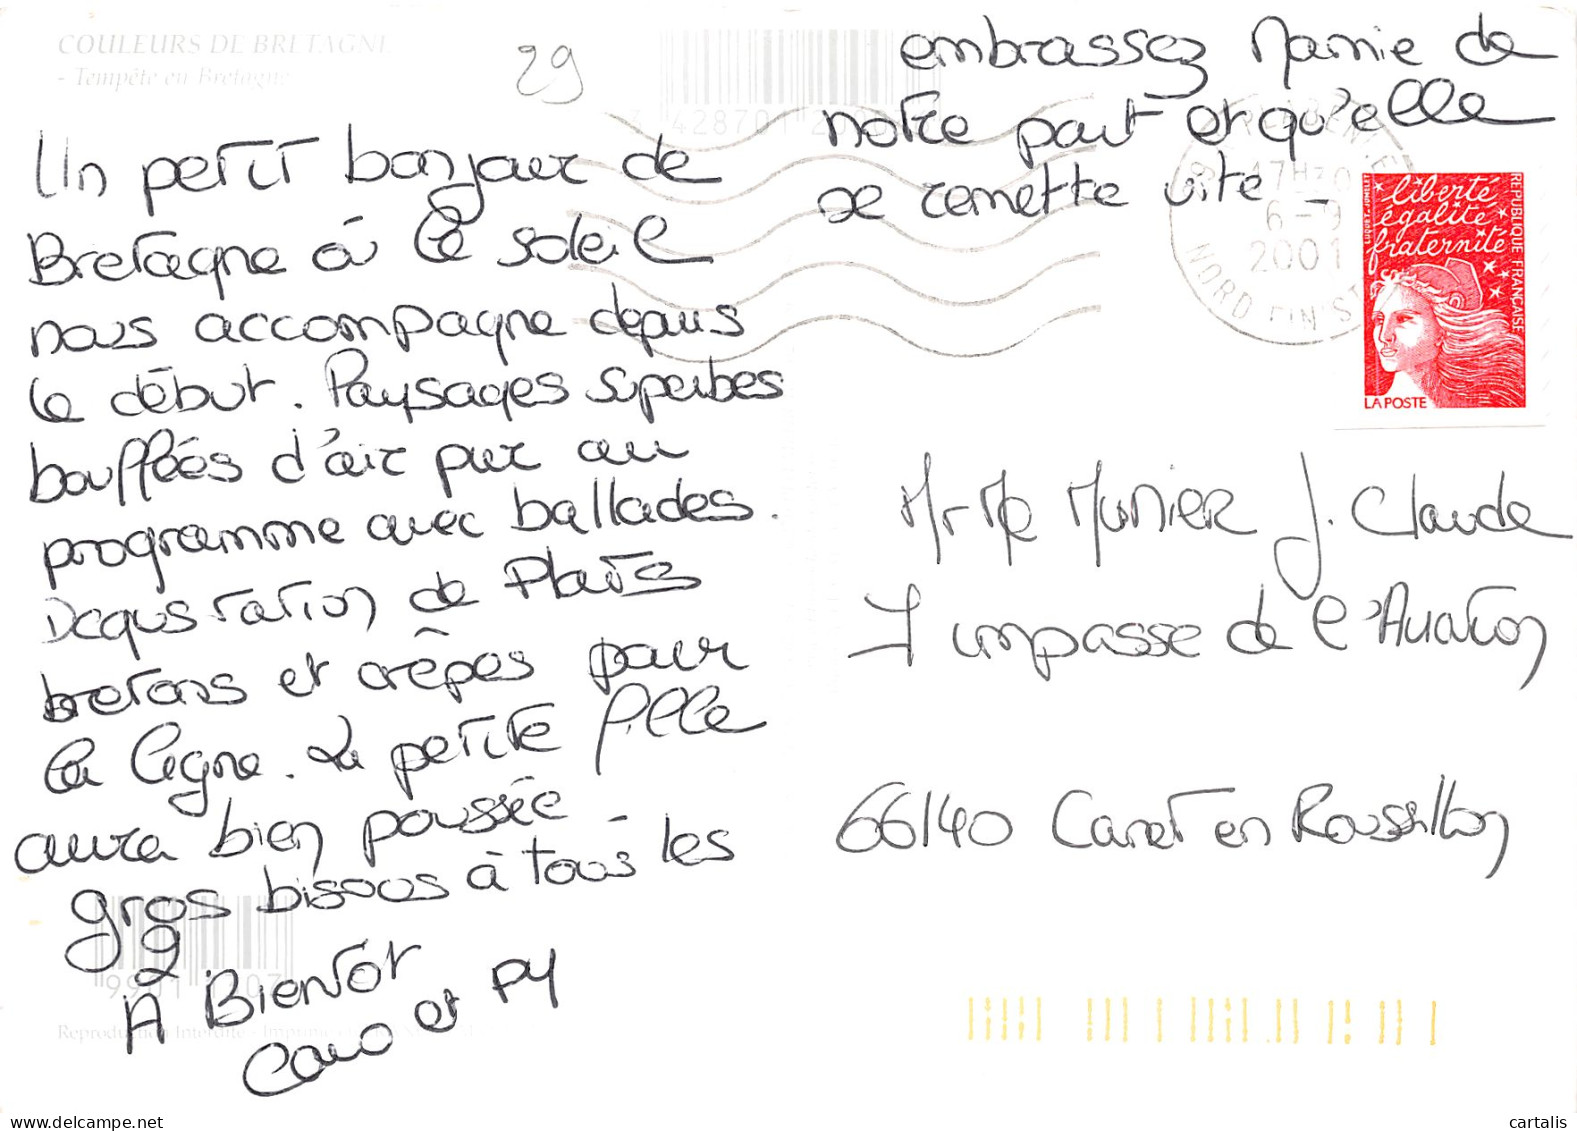 COULEURS DE BRETAGNE
- Tempête en Bretagne
29
Un petit bonjour de
Bretagne où le soleil
nous accompagne depuis
le début. Paysages superbes
bouffées d'air pur au
programme avec ballades.
Degustation de Plats
bretons et crêpes pour
la ligne. La petite fille
aura bien poussée
gros bisous à tous les
2
À Bientot
Caro et PY
embrassez Mamie de
notre part et qu'elle
se remette vite
17H30
6-9
2001
NORD FINIST
liberté
égalité
fraternité
RÉPUBLIQUE FRANÇAISE
LA POSTE
Mr Me Munier J. Claude
7 impasse de l'Aviation
66140 Canet en Roussillon
Reproduction Interdite - Imprimé
cartalis